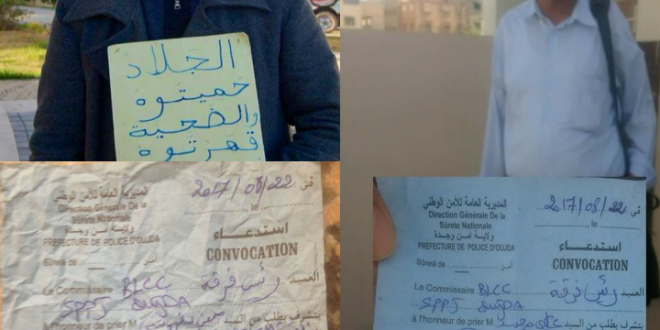 الجلاد
حميتوه
والضحية
قهرتوه
المديرية العامة للأمن الوطني
Direction Générale De la
Sûreté Nationale
ولاية أمن وجدة
PREFECTURE DE POLICE D'OUJDA
Sûreté de
أمن
في 2017/08/22
, le
استدعاء
CONVOCATION
Le Commissaire BLCC رئيس فرقة العميد
SPPJ OUJDA
à l'honneur de prier M يتشرف بطلب من السيد
المديرية العامة للأمن الوطني
Direction Générale De la
Sûreté Nationale
ولاية أمن وجدة
PREFECTURE DE POLICE D'OUJDA
Sûreté de
أمن
في 2017/08/22
, le
استدعاء
CONVOCATION
Le Commissaire BLCC رئيس فرقة العميد
SPPJ OUJDA
à l'honneur de prier M يتشرف بطلب من السيد